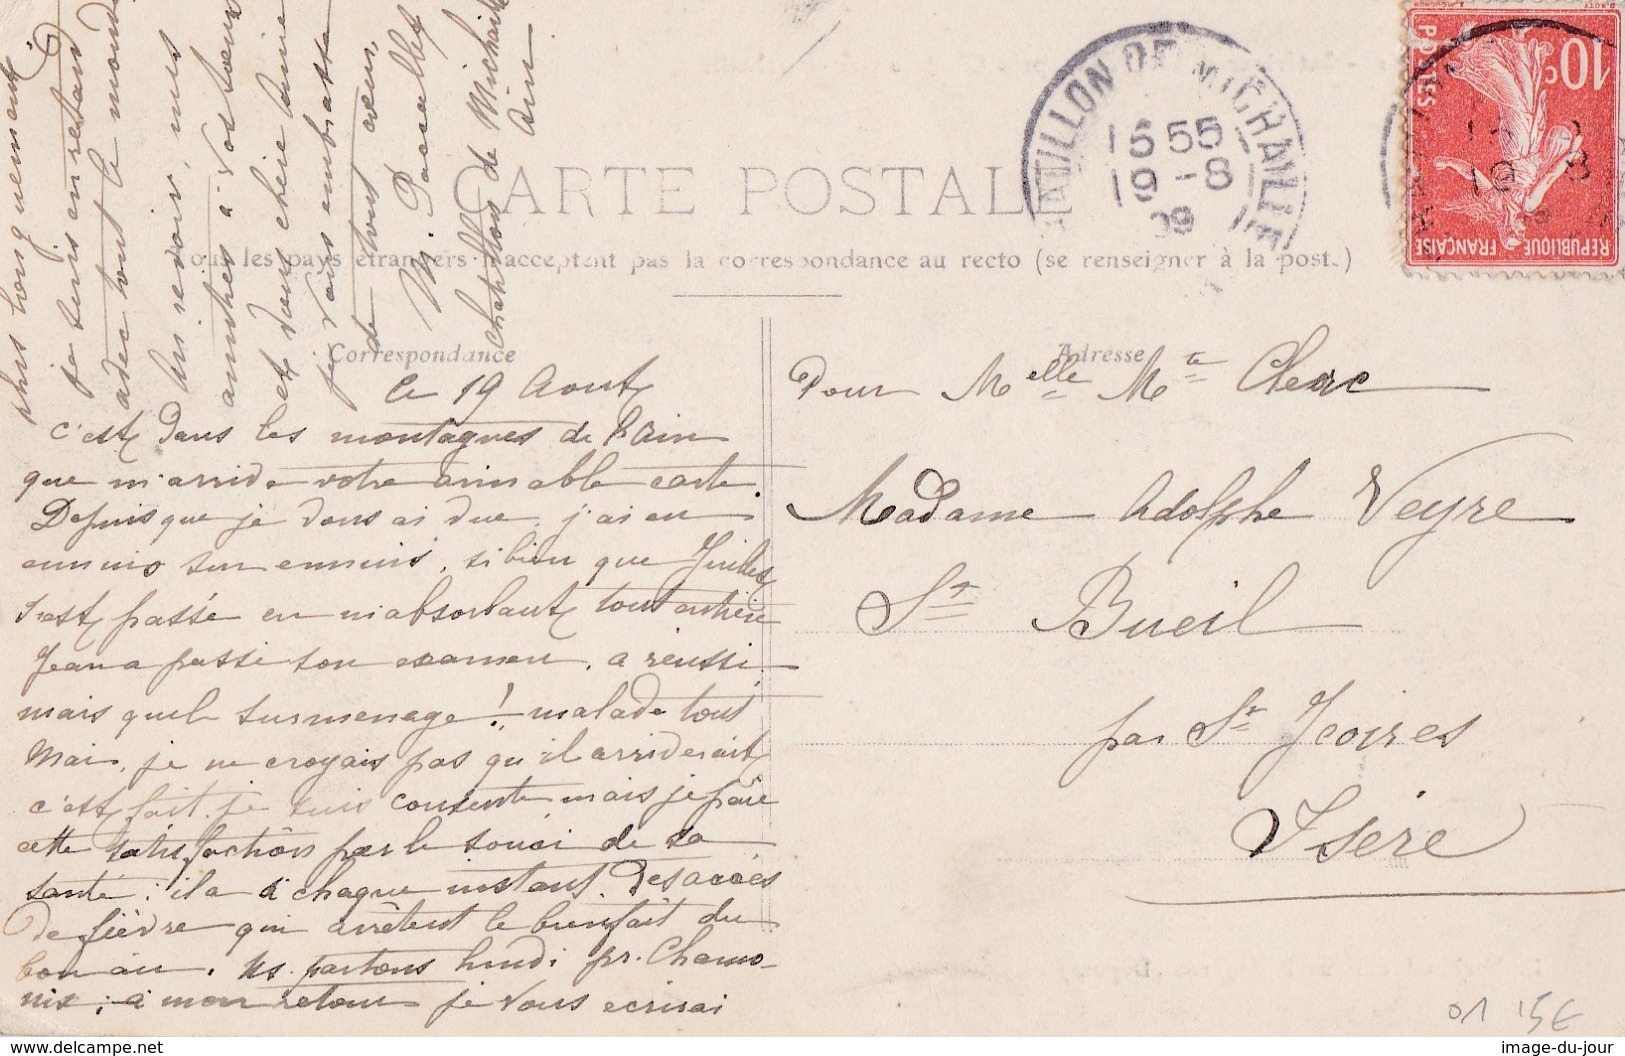 CARTE POSTALE
Tous les pays étrangers n'acceptent pas la correspondance au recto (se renseigner à la poste.)
Correspondance
Adresse
CHATILLON DE MICHAILLE
15 55
19 - 8
09
10c
POSTES
REPUBLIQUE FRANÇAISE
Le 19 Aout
c'est dans les montagnes de l'Ain
que m'arrive votre aimable carte.
Depuis que je vous ai vue, j'ai eu
ennuis sur ennuis, si bien que Juillet
s'est passé en m'absorbant tout entière
Jean a passé son examen, a réussi,
mais quel surmenage! malade tout
Mai, je ne croyais pas qu'il arriverait
c'est fait. je suis contente mais je paie
cette satisfaction par le souci de sa
santé; il a à chaque instant des accès
de fièvre qui arrêtent le bienfait du
bon air. Ns. partons lundi pr. Chamo-
nix; à mon retour je vous ecrirai
plus longuement.
je suis en retard
avec tout le monde
Au revoir, mes
amitiés à vos sœurs
et vous chère amie
je vous embrasse
de tout cœur,
M. Paccallet
Chatillon de Michaille
Ain
Pour Melle Mte Clerc
Madame Adolphe Veyre
St Bueil
par St Jeoires
Isère
01 15€
image-du-jour
www.delcampe.net